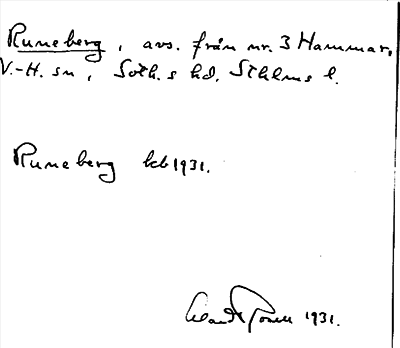 Runeberg, avs. från nr. 3 Hammar,
V.-H. sn, Soth.s hd, Sthlms l.
Runeberg kb 1931.
1931.